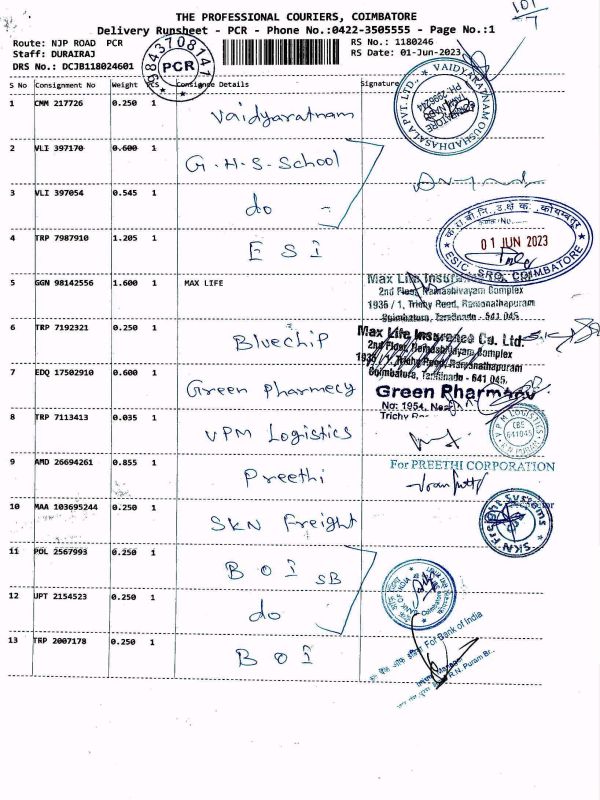 101
7
THE PROFESSIONAL COURIERS, COIMBATORE
Delivery Runsheet - PCR - Phone No.:0422-3505555 - Page No.:1
Route: NJP ROAD PCR
RS No.: 1180246
Staff: DURAIRAJ
RS Date: 01-Jun-2023
DRS No.: DCJB118024601
9843708141
PCR
S No Consignment No Weight PCS Consignee Details Signature
VAIDYARATNAM OUSHADHASALA PVT. LTD.,
COIMBATORE
TAMILNADU
1 CMM 217726 0.250 1 Vaidyaratnam
2 VLI 397170 0.600 1 G.H.S. School
3 VLI 397054 0.545 1 do
4 TRP 7987910 1.205 1 ESI
क.रा.बी.नि., उ.क्षे.का., कोयम्बत्तूर
01 JUN 2023
ESIC, SRO, COIMBATORE
5 GGN 98142556 1.600 1 MAX LIFE
Max Life Insurance
2nd Floor, Ramashivayam Complex
1935 / 1, Trichy Road, Ramanathapuram
Coimbatore, Tamilnadu - 641 045.
6 TRP 7192321 0.250 1 Bluechip
Max Life Insurance Co. Ltd.
2nd Floor, Ramashivayam Complex
1935 / 1, Trichy Road, Ramanathapuram
Coimbatore, Tamilnadu - 641 045.
7 EDQ 17502910 0.600 1 Green Pharmecy
Green Pharmacy
No: 1954, Near
Trichy Road
8 TRP 7113413 0.035 1 VPM Logistics
VPM LOGISTICS
CBE
641045
9 AMD 26694261 0.855 1 Preethi
For PREETHI CORPORATION
10 MAA 103695244 0.250 1 SKN Freight
SKN Freight Systems
11 POL 2567993 0.250 1 BOI SB
BANK OF INDIA
Coimbatore
12 UPT 2154523 0.250 1 do
13 TRP 2007178 0.250 1 BOI
For Bank of India
Manager
R.N. Puram Br.